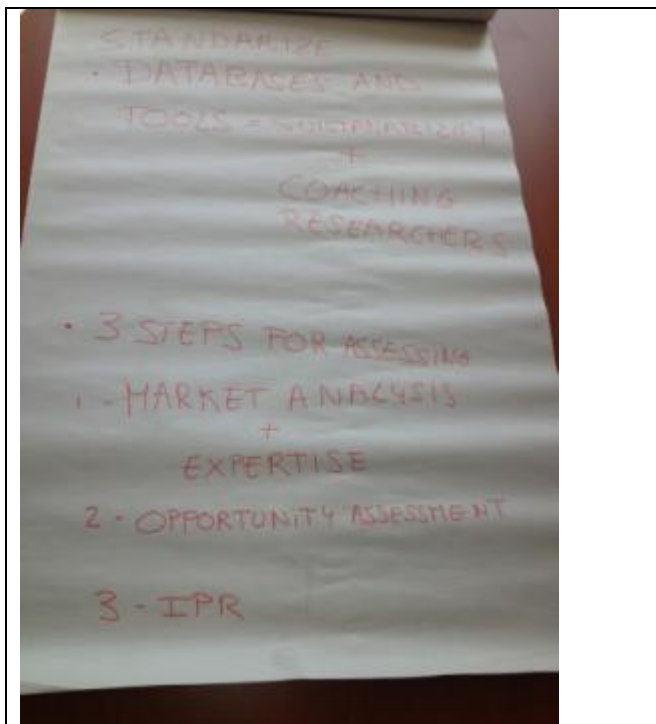 STANDARIZE
· DATABASES AND
TOOLS = SUSTAINABILITY
+
COACHING
RESEARCHERS
· 3 STEPS FOR ASSESSING
1 - MARKET ANALYSIS
+
EXPERTISE
2 - OPPORTUNITY ASSESSMENT
3 - IPR